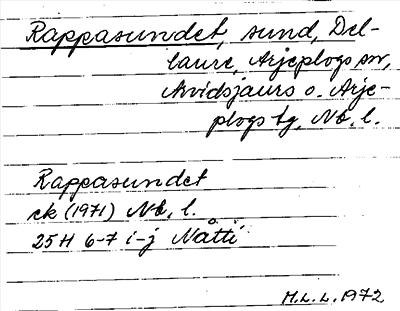 Rappasundet, sund, Del-
laure, Arjeplogs sn,
Arvidsjaurs o. Arje-
plogs tg, Nb. l.
Rappasundet
ek (1971) Nb. l.
25H 6-7 i-j Nåtti
M.L.L. 1972